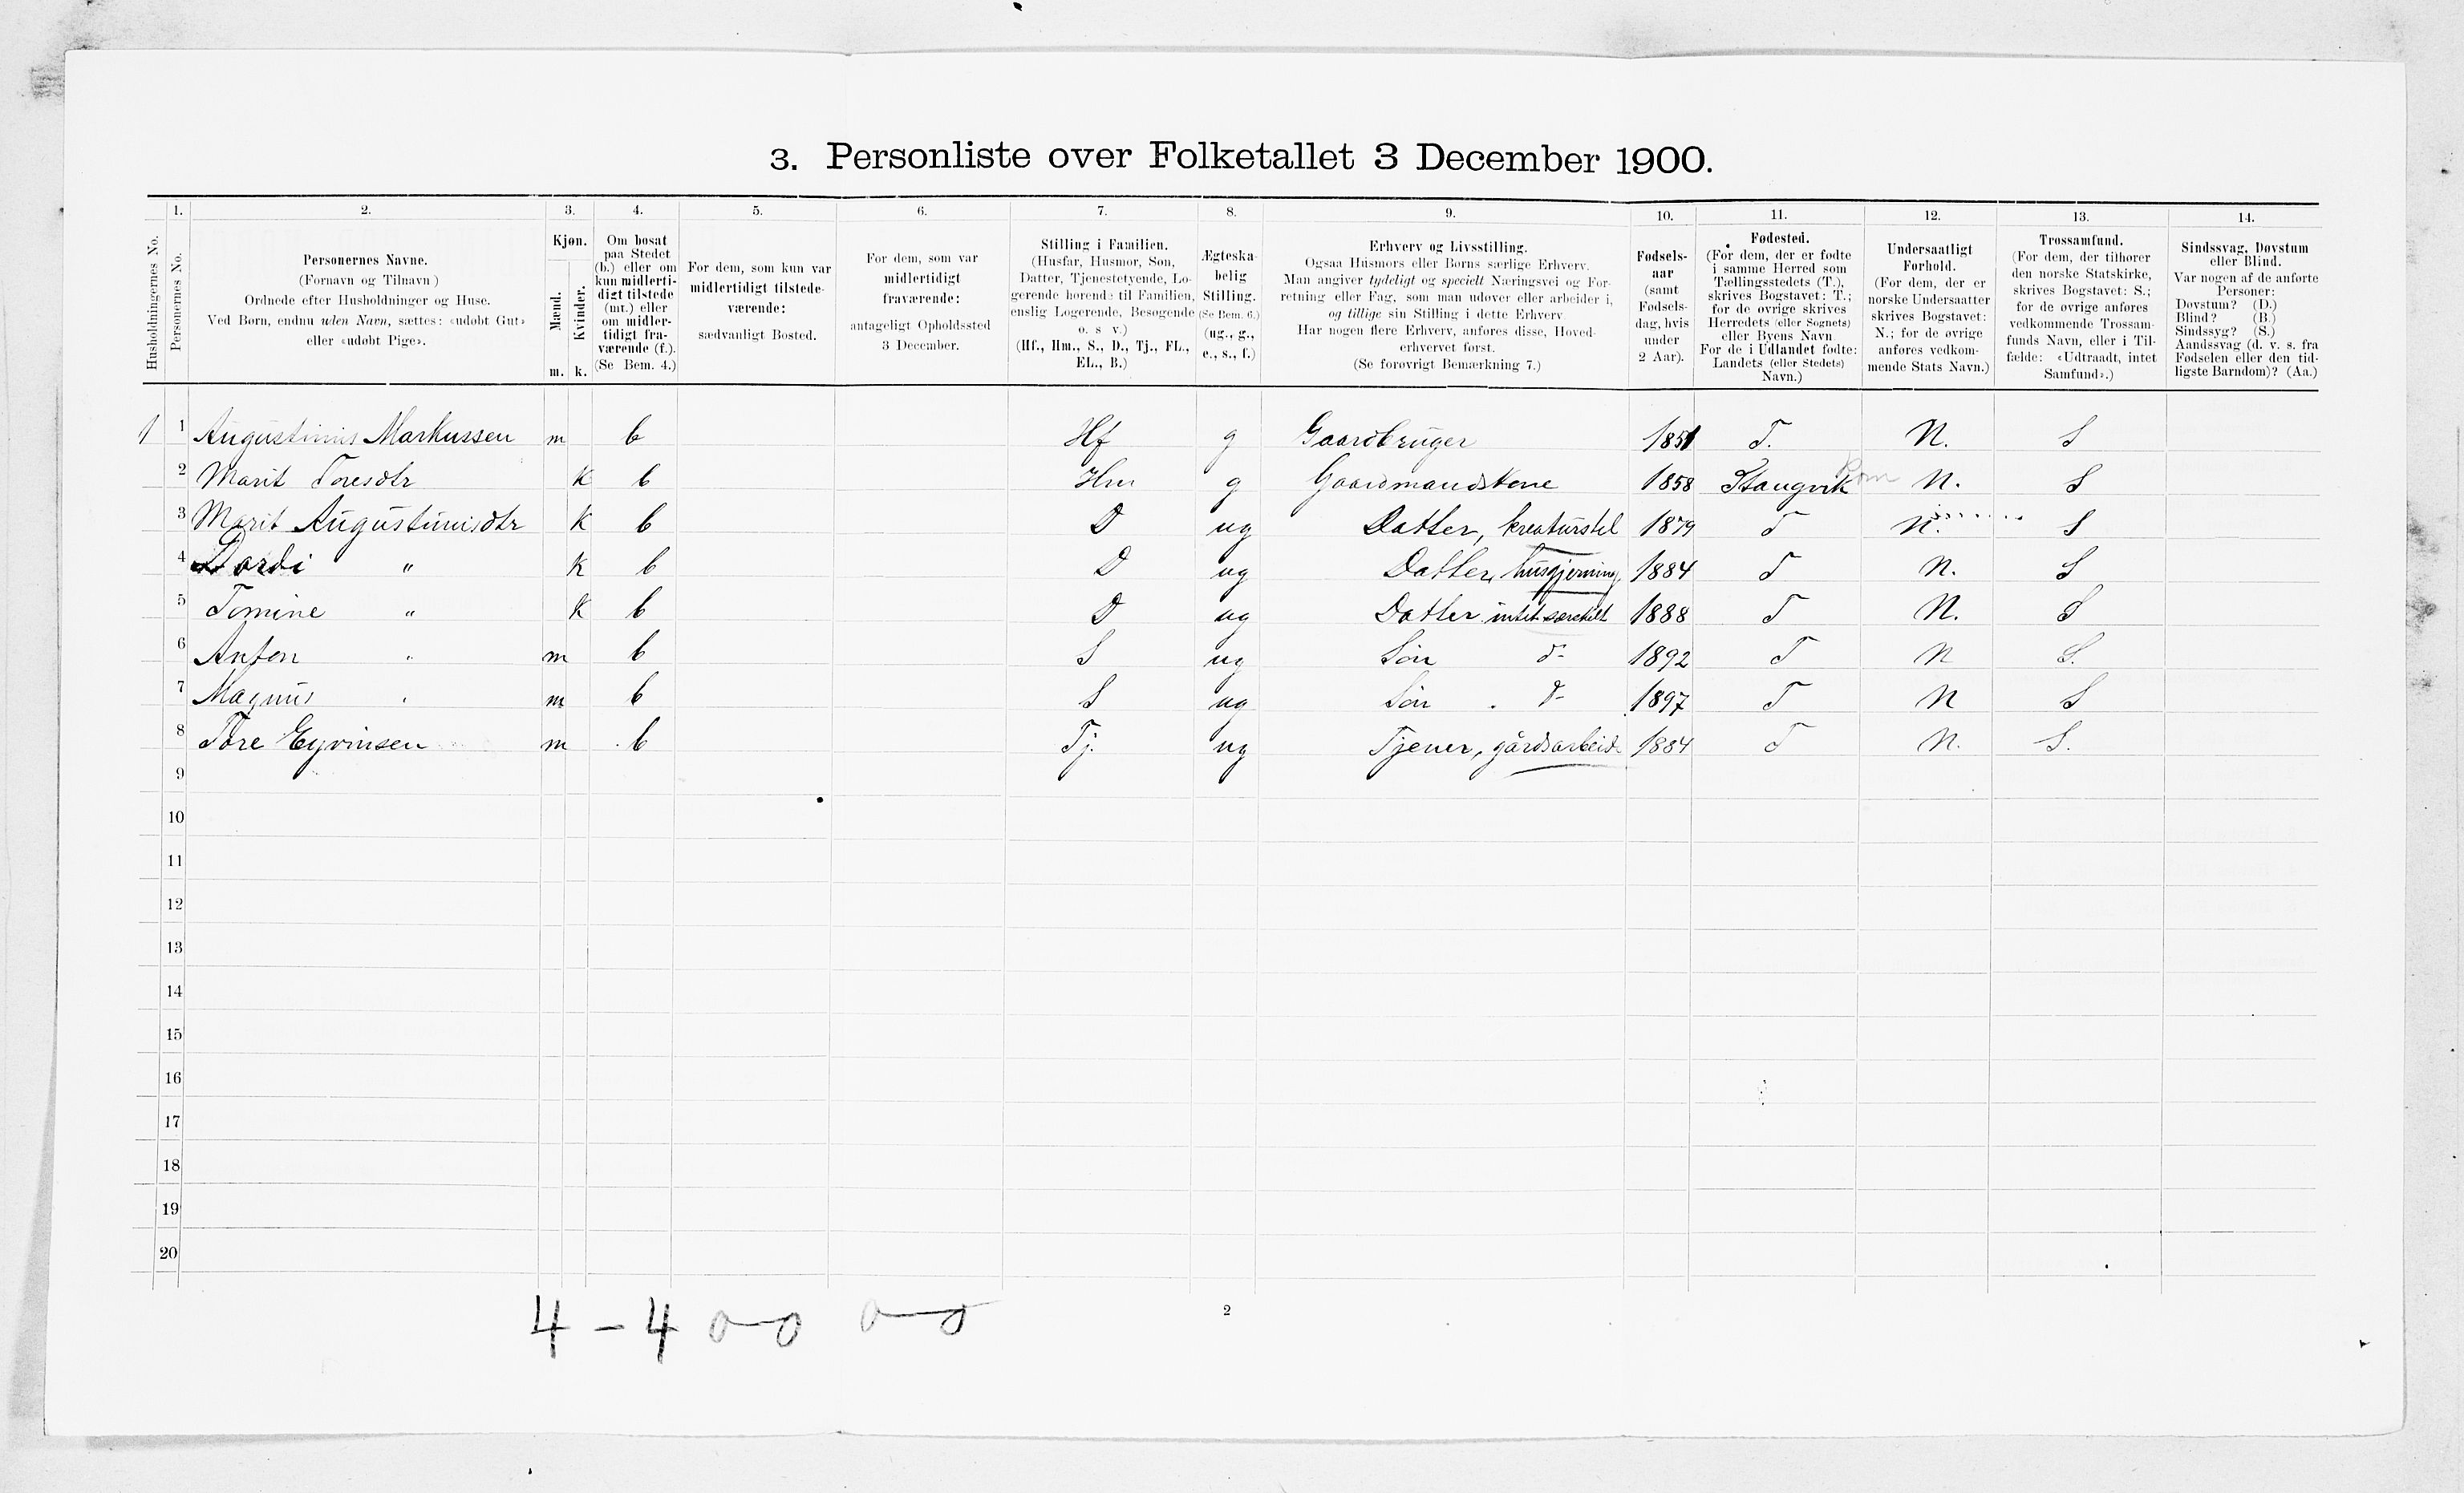 3. Personliste over Folketallet 3 December 1900.
1. 2. 3. 4. 5. 6. 7. 8. 9. 10. 11. 12. 13. 14.
Husholdningernes No.
Personernes No.
Personernes Navne.
(Fornavn og Tilnavn)
Ordnede efter Husholdninger og Huse.
Ved Børn, endnu uden Navn, sættes: «udøbt Gut»
eller «udøbt Pige».
Kjøn.
Mænd.
Kvinder.
m. k.
Om bosat
paa Stedet
(b.) eller om
kun midlerti-
digt tilstede
(mt.) eller
om midler-
tidigt fra-
værende (f.).
(Se Bem. 4.)
For dem, som kun var
midlertidigt tilstede-
værende:
sædvanligt Bosted.
For dem, som var
midlertidigt
fraværende:
antageligt Opholdssted
3 December.
Stilling i Familien.
(Husfar, Husmor, Søn,
Datter, Tjenestetyende, Lo-
gerende hørende til Familien,
enslig Logerende, Besøgende
o. s v.)
(Hf., Hm., S., D., Tj., FL.,
EL., B.)
Ægteska-
belig
Stilling.
(Se Bem. 6.)
(ug., g.,
e., s., f.)
Erhverv og Livsstilling.
Ogsaa Husmors eller Børns særlige Erhverv.
Man angiver tydeligt og specielt Næringsvei og For-
retning eller Fag, som man udøver eller arbeider i,
og tillige sin Stilling i dette Erhverv.
Har nogen flere Erhverv, anføres disse, Hoved-
erhvervet først.
(Se forøvrigt Bemærkning 7.)
Fødsels-
aar
(samt
Fødsels-
dag, hvis
under
2 Aar).
Fødested.
(For dem, der er fødte
i samme Herred som
Tællingsstedets (T.),
skrives Bogstavet: T.;
for de øvrige skrives
Herredets (eller Sognets)
eller Byens Navn.
For de i Udlandet fødte:
Landets (eller Stedets)
Navn.)
Undersaatligt
Forhold.
(For dem, der er
norske Undersaatter
skrives Bogstavet:
N.; for de øvrige
anføres vedkom-
mende Stats Navn.)
Trossamfund.
(For dem, der tilhører
den norske Statskirke,
skrives Bogstavet: S.;
for de øvrige anføres
vedkommende Trossam-
funds Navn, eller i Til-
fælde: «Udtraadt, intet
Samfund».)
Sindssvag, Døvstum
eller Blind.
Var nogen af de anførte
Personer:
Døvstum? (D.)
Blind? (B.)
Sindssyg? (S.)
Aandssvag (d. v. s. fra
Fødselen eller den tid-
ligste Barndom)? (Aa.)
1 1 Augustinus Markussen m b Hf g Gaardbruger 1851 T. N. S
2 Marit Toresdtr k b Hm g Gaardmandskone 1858 Stangvik Rom N. S
3 Marit Augustinusdtr k b D ug Datter, kreaturstel 1879 T N. S
4 Dordi " k b D ug Datter, husgjerning 1884 T N. S
5 Tomine " k b D ug Datter intet særskilt 1888 T N. S
6 Anton " m b S ug Søn d- 1892 T N S.
7 Magnus " m b S ug Søn d- 1897 T N S
8 Tore Eyvinsen m b Tj. ug Tjener, gårdsarbeide 1884 T N. S.
9
10
11
12
13
14
15
16
17
18
19
20
4 - 4 0-0 0-0
2